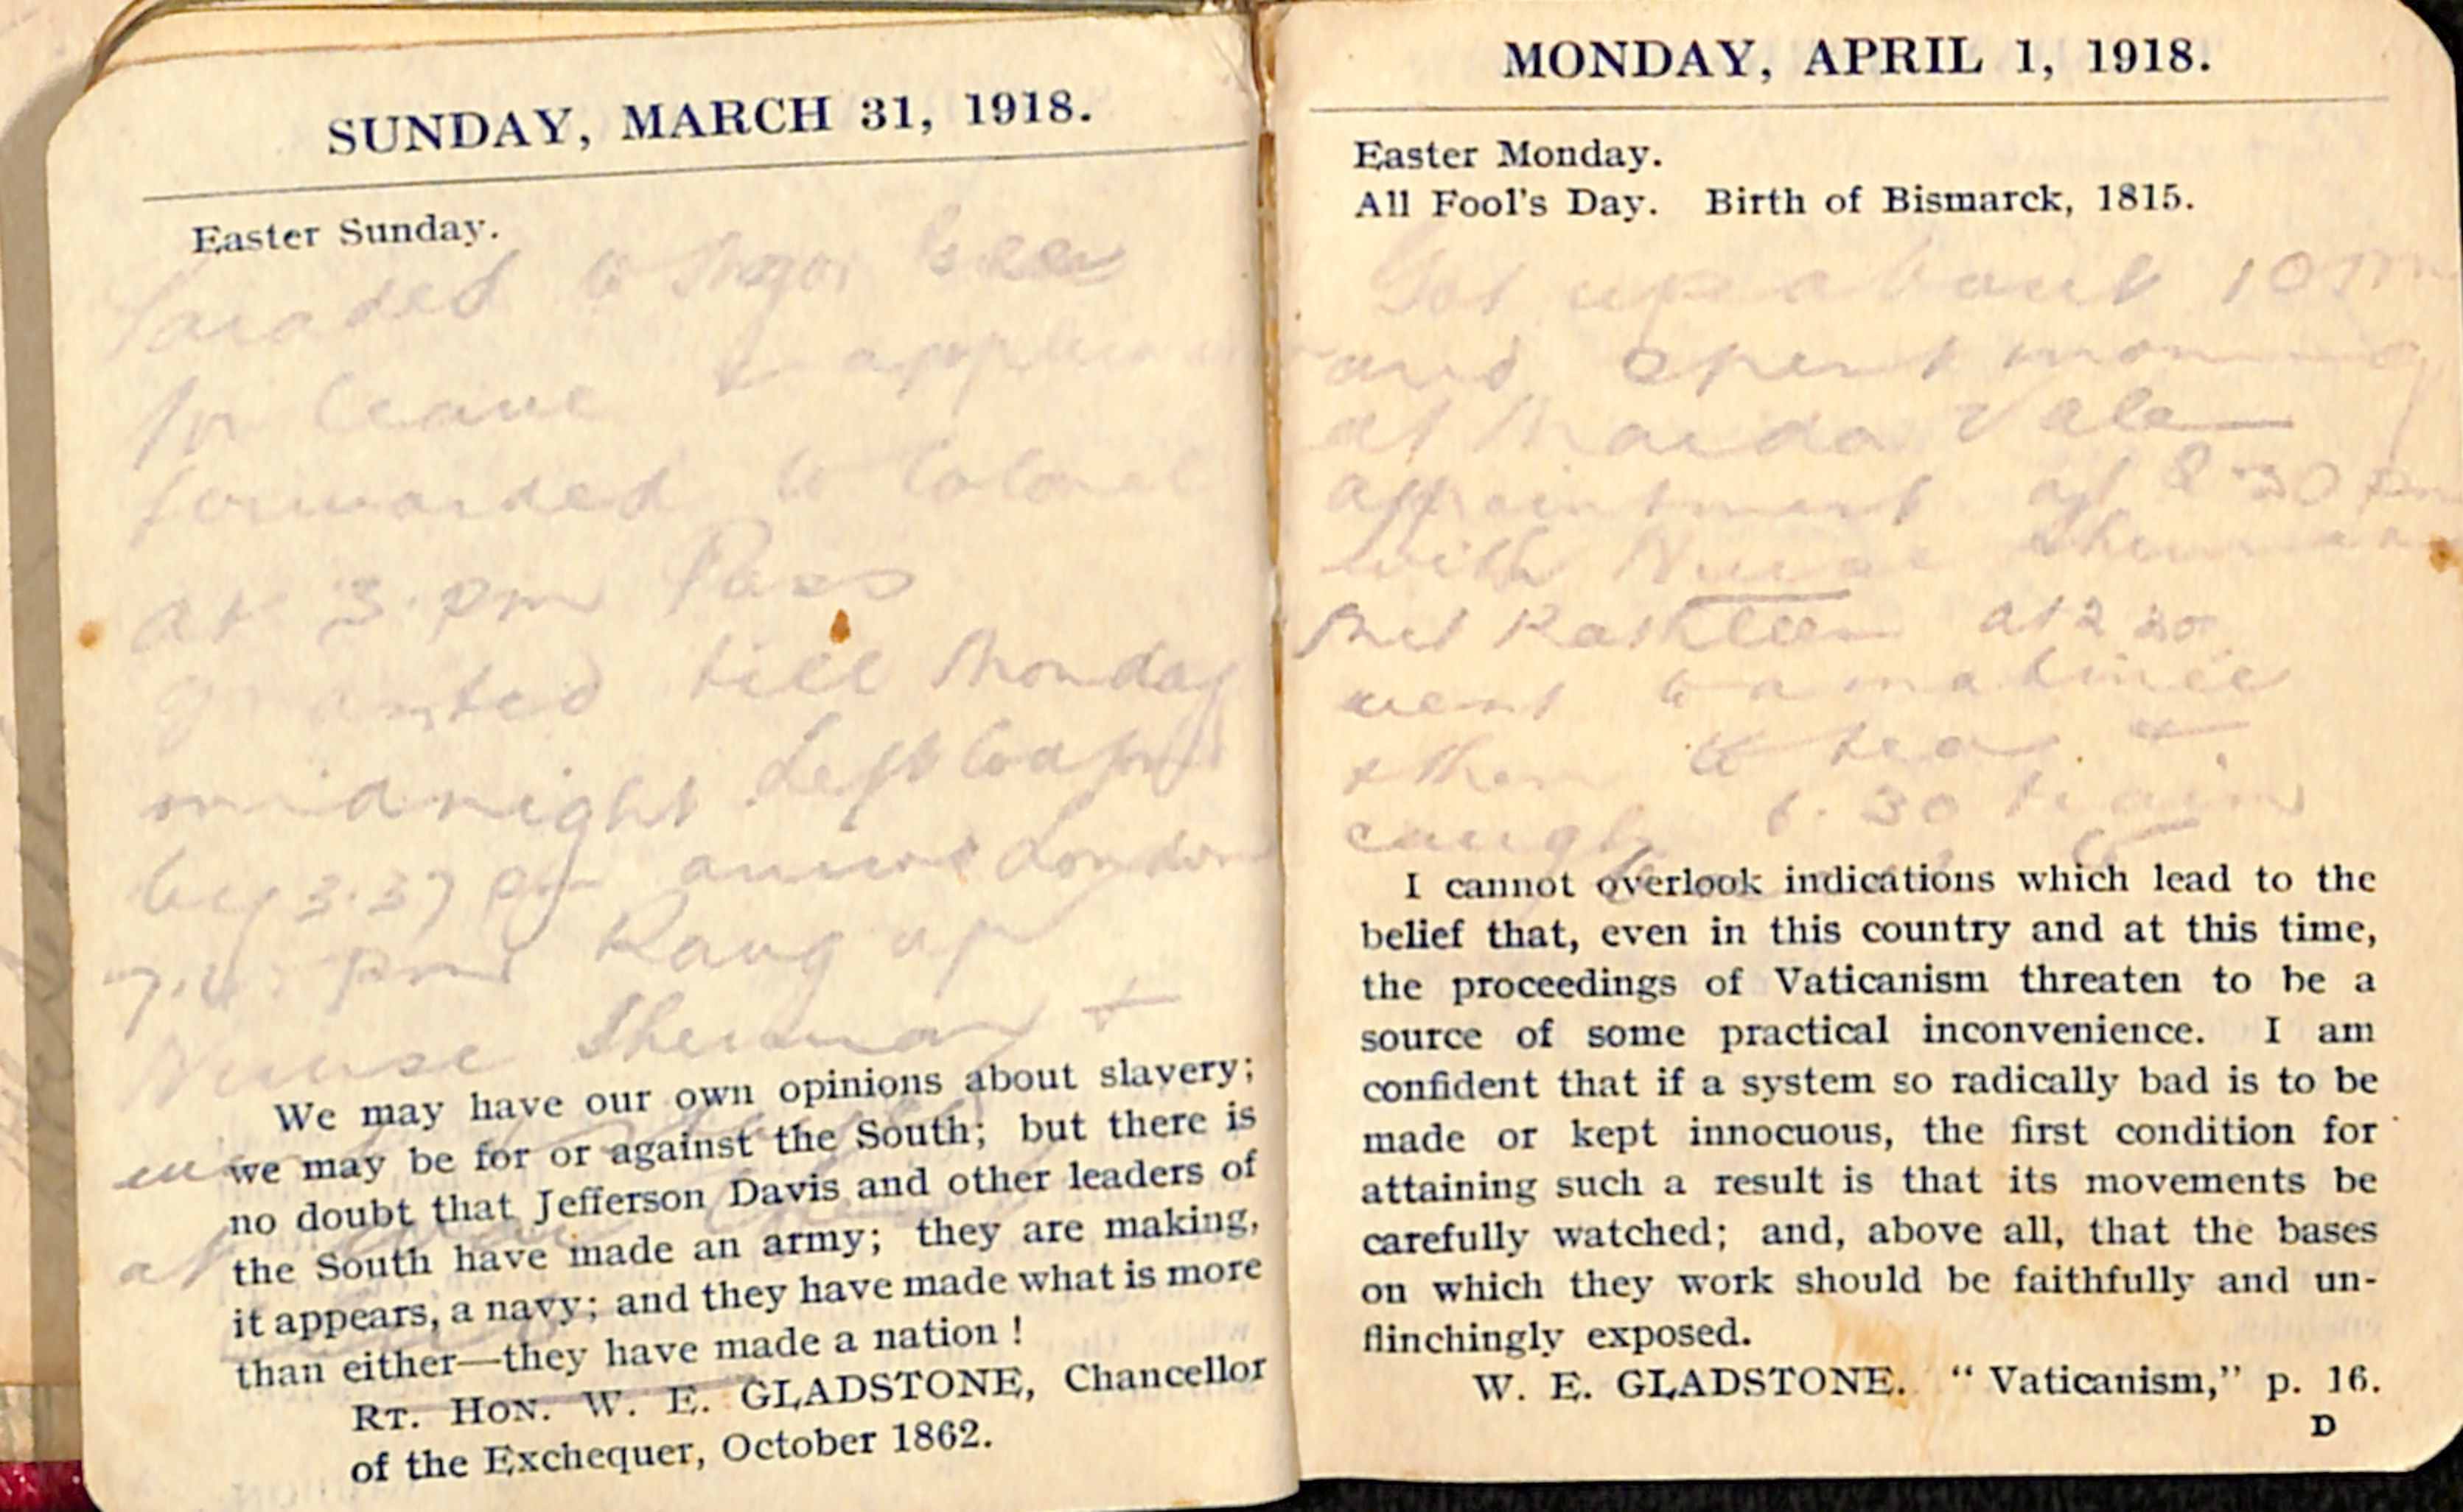 SUNDAY, MARCH 31, 1918.
Easter Sunday.
Paraded to Major
for leave &
forwarded to Colonel
at 3. pm Pass
granted till Monday
midnight left
by 3.37 pm arrived London
pm Rang up
Nurse Sherman +
We may have our own opinions about slavery;
we may be for or against the South; but there is
no doubt that Jefferson Davis and other leaders of
at
the South have made an army; they are making,
it appears, a navy; and they have made what is more
than either—they have made a nation !
RT. HON. W. E. GLADSTONE, Chancellor
of the Exchequer, October 1862.
MONDAY, APRIL 1, 1918.
Easter Monday.
All Fool's Day. Birth of Bismarck, 1815.
Got up about 10
and spent morning
at Maida Vale
appointment at 8-30 pm
with Nurse Sherman
Met Kathleen at 2 30
went to a matinée
& then to tea &
caught 6.30 train
I cannot overlook indications which lead to the
belief that, even in this country and at this time,
the proceedings of Vaticanism threaten to be a
source of some practical inconvenience. I am
confident that if a system so radically bad is to be
made or kept innocuous, the first condition for
attaining such a result is that its movements be
carefully watched; and, above all, that the bases
on which they work should be faithfully and un-
flinchingly exposed.
W. E. GLADSTONE. “ Vaticanism,” p. 16.
D